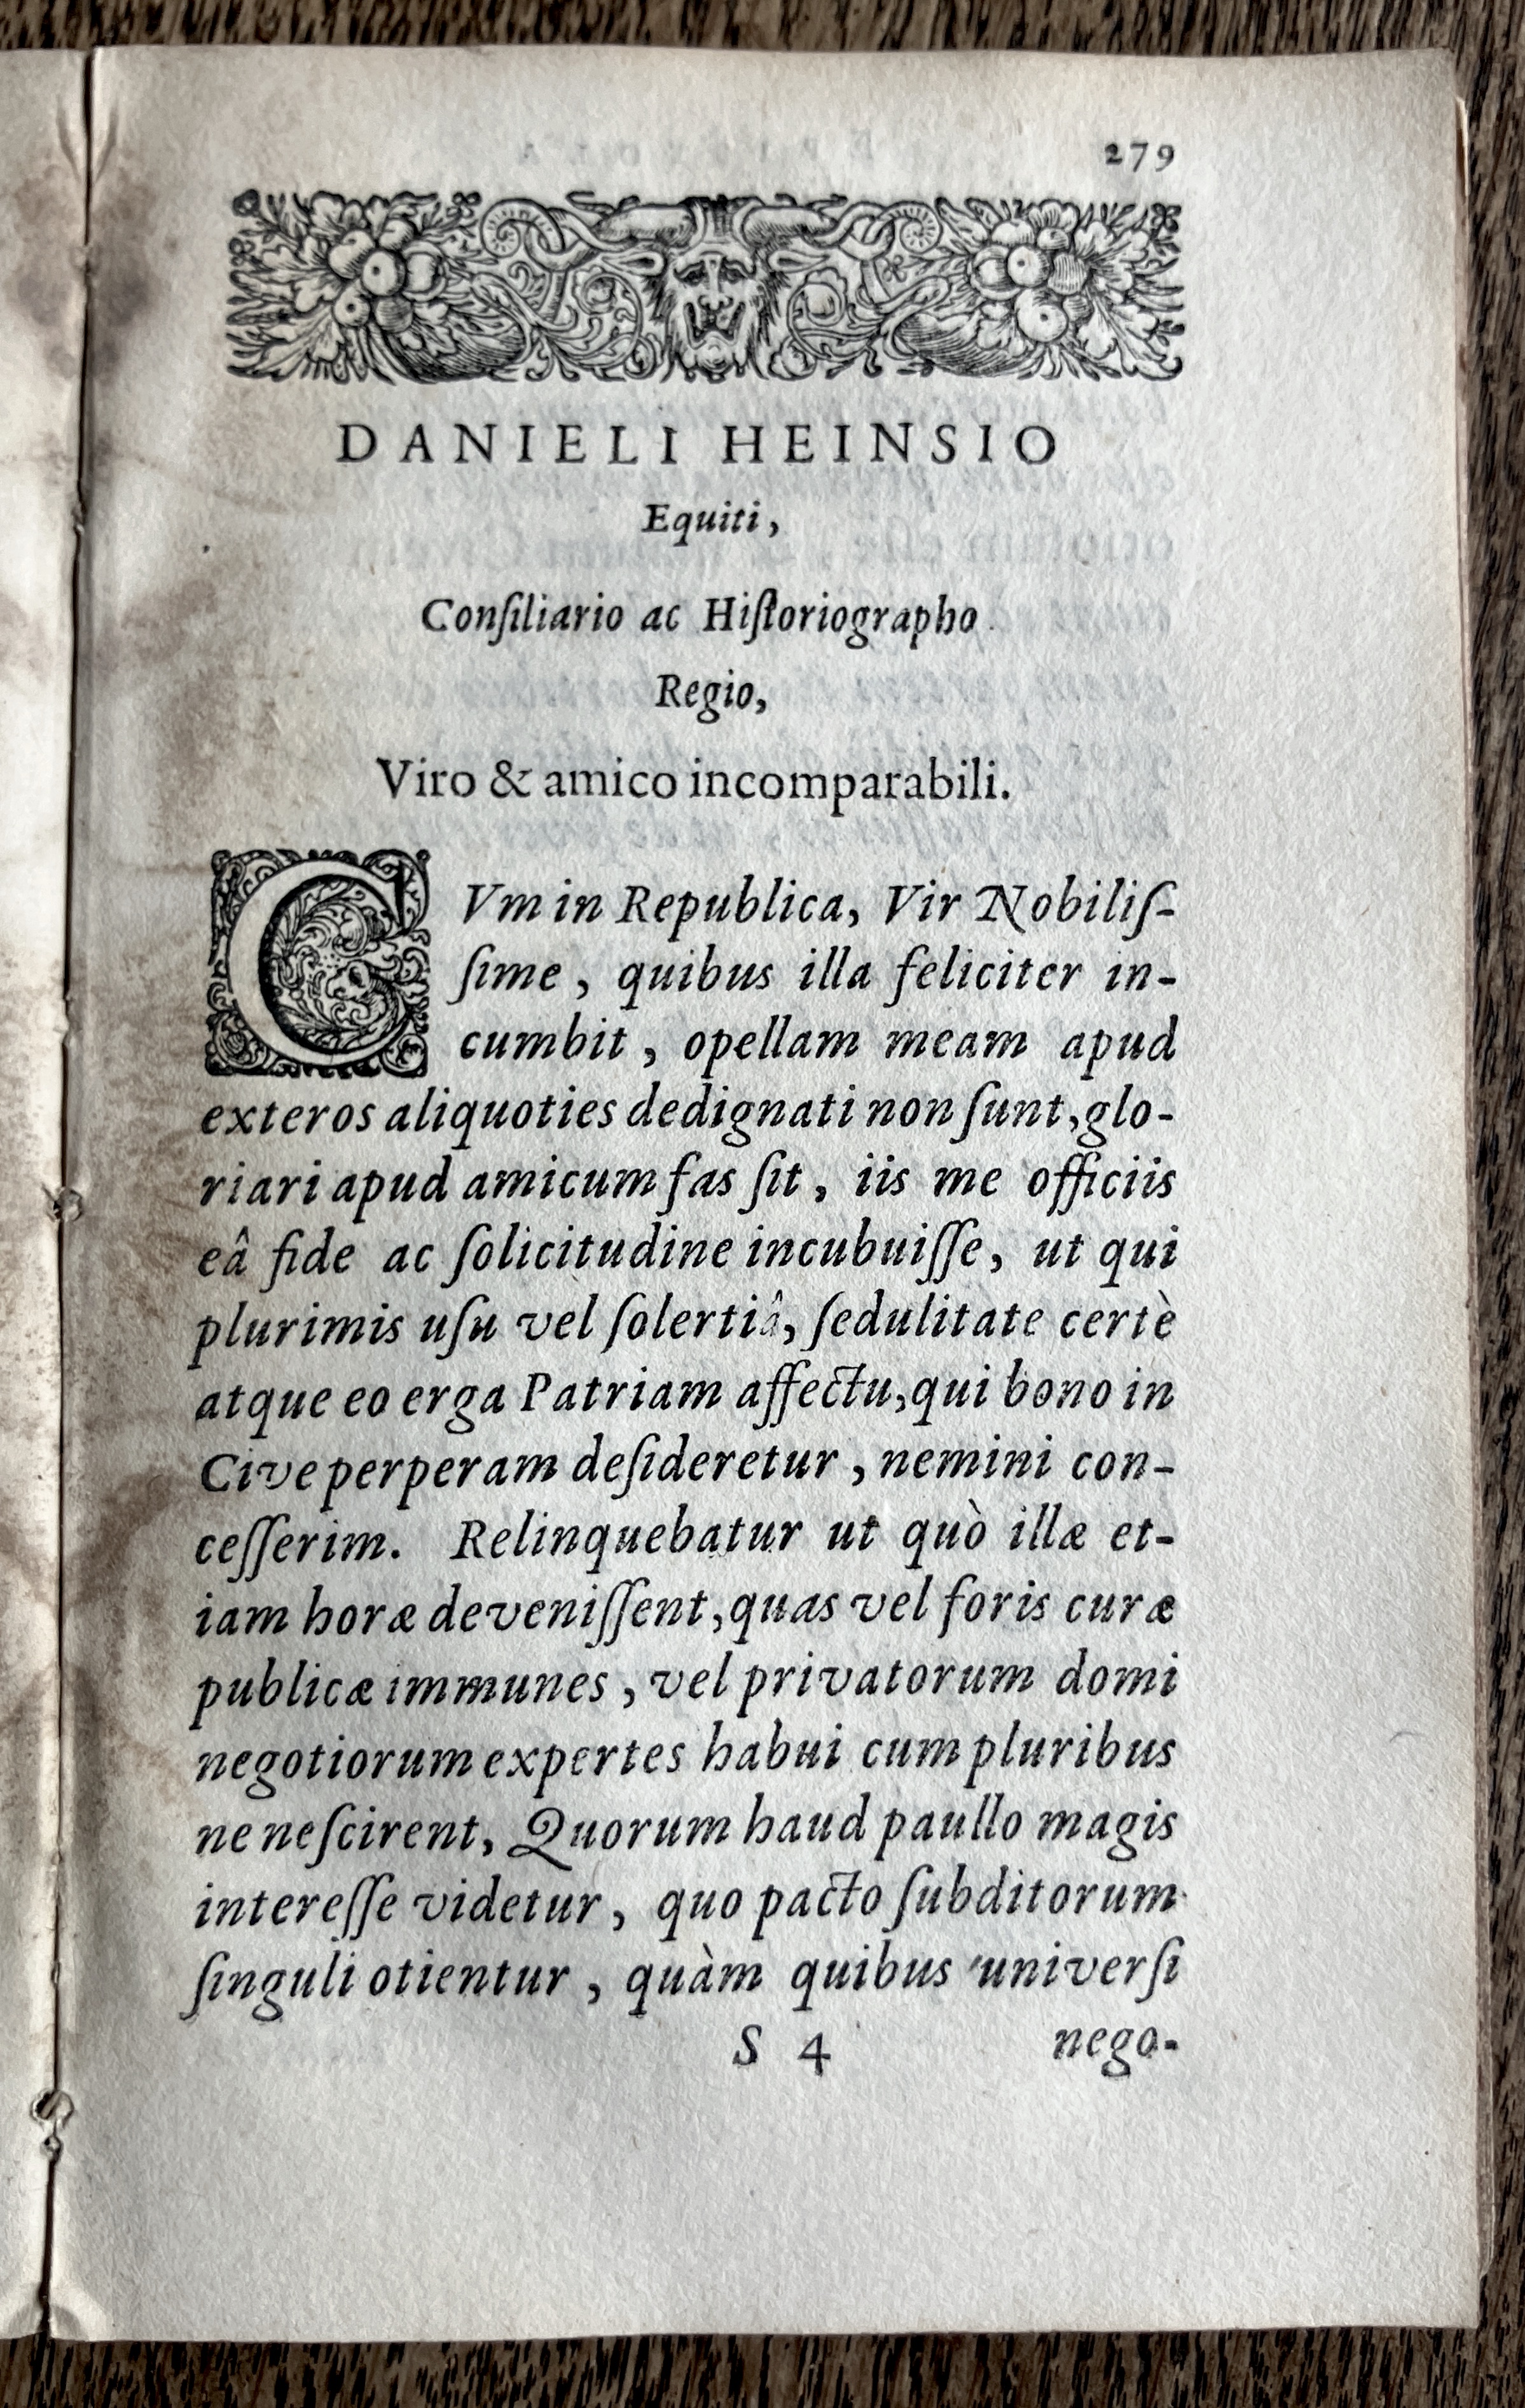 279
DANIELI HEINSIO
Equiti,
Conſiliario ac Hiſtoriographo
Regio,
Viro & amico incomparabili.
CVm in Republica, Vir Nobiliſ-
ſime, quibus illa feliciter in-
cumbit, opellam meam apud
exteros aliquoties dedignati non ſunt, glo-
riari apud amicum fas ſit, iis me officiis
eâ fide ac ſolicitudine incubuiſſe, ut qui
plurimis uſu vel ſolertiâ, ſedulitate certè
atque eo erga Patriam affectu, qui bono in
Cive perperam deſideretur, nemini con-
ceſſerim. Relinquebatur ut quò illæ et-
iam horæ deveniſſent, quas vel foris curæ
publicæ immunes, vel privatorum domi
negotiorum expertes habui cum pluribus
ne neſcirent, Quorum haud paullo magis
intereſſe videtur, quo pacto ſubditorum
ſinguli otientur, quàm quibus univerſi
S 4 nego-